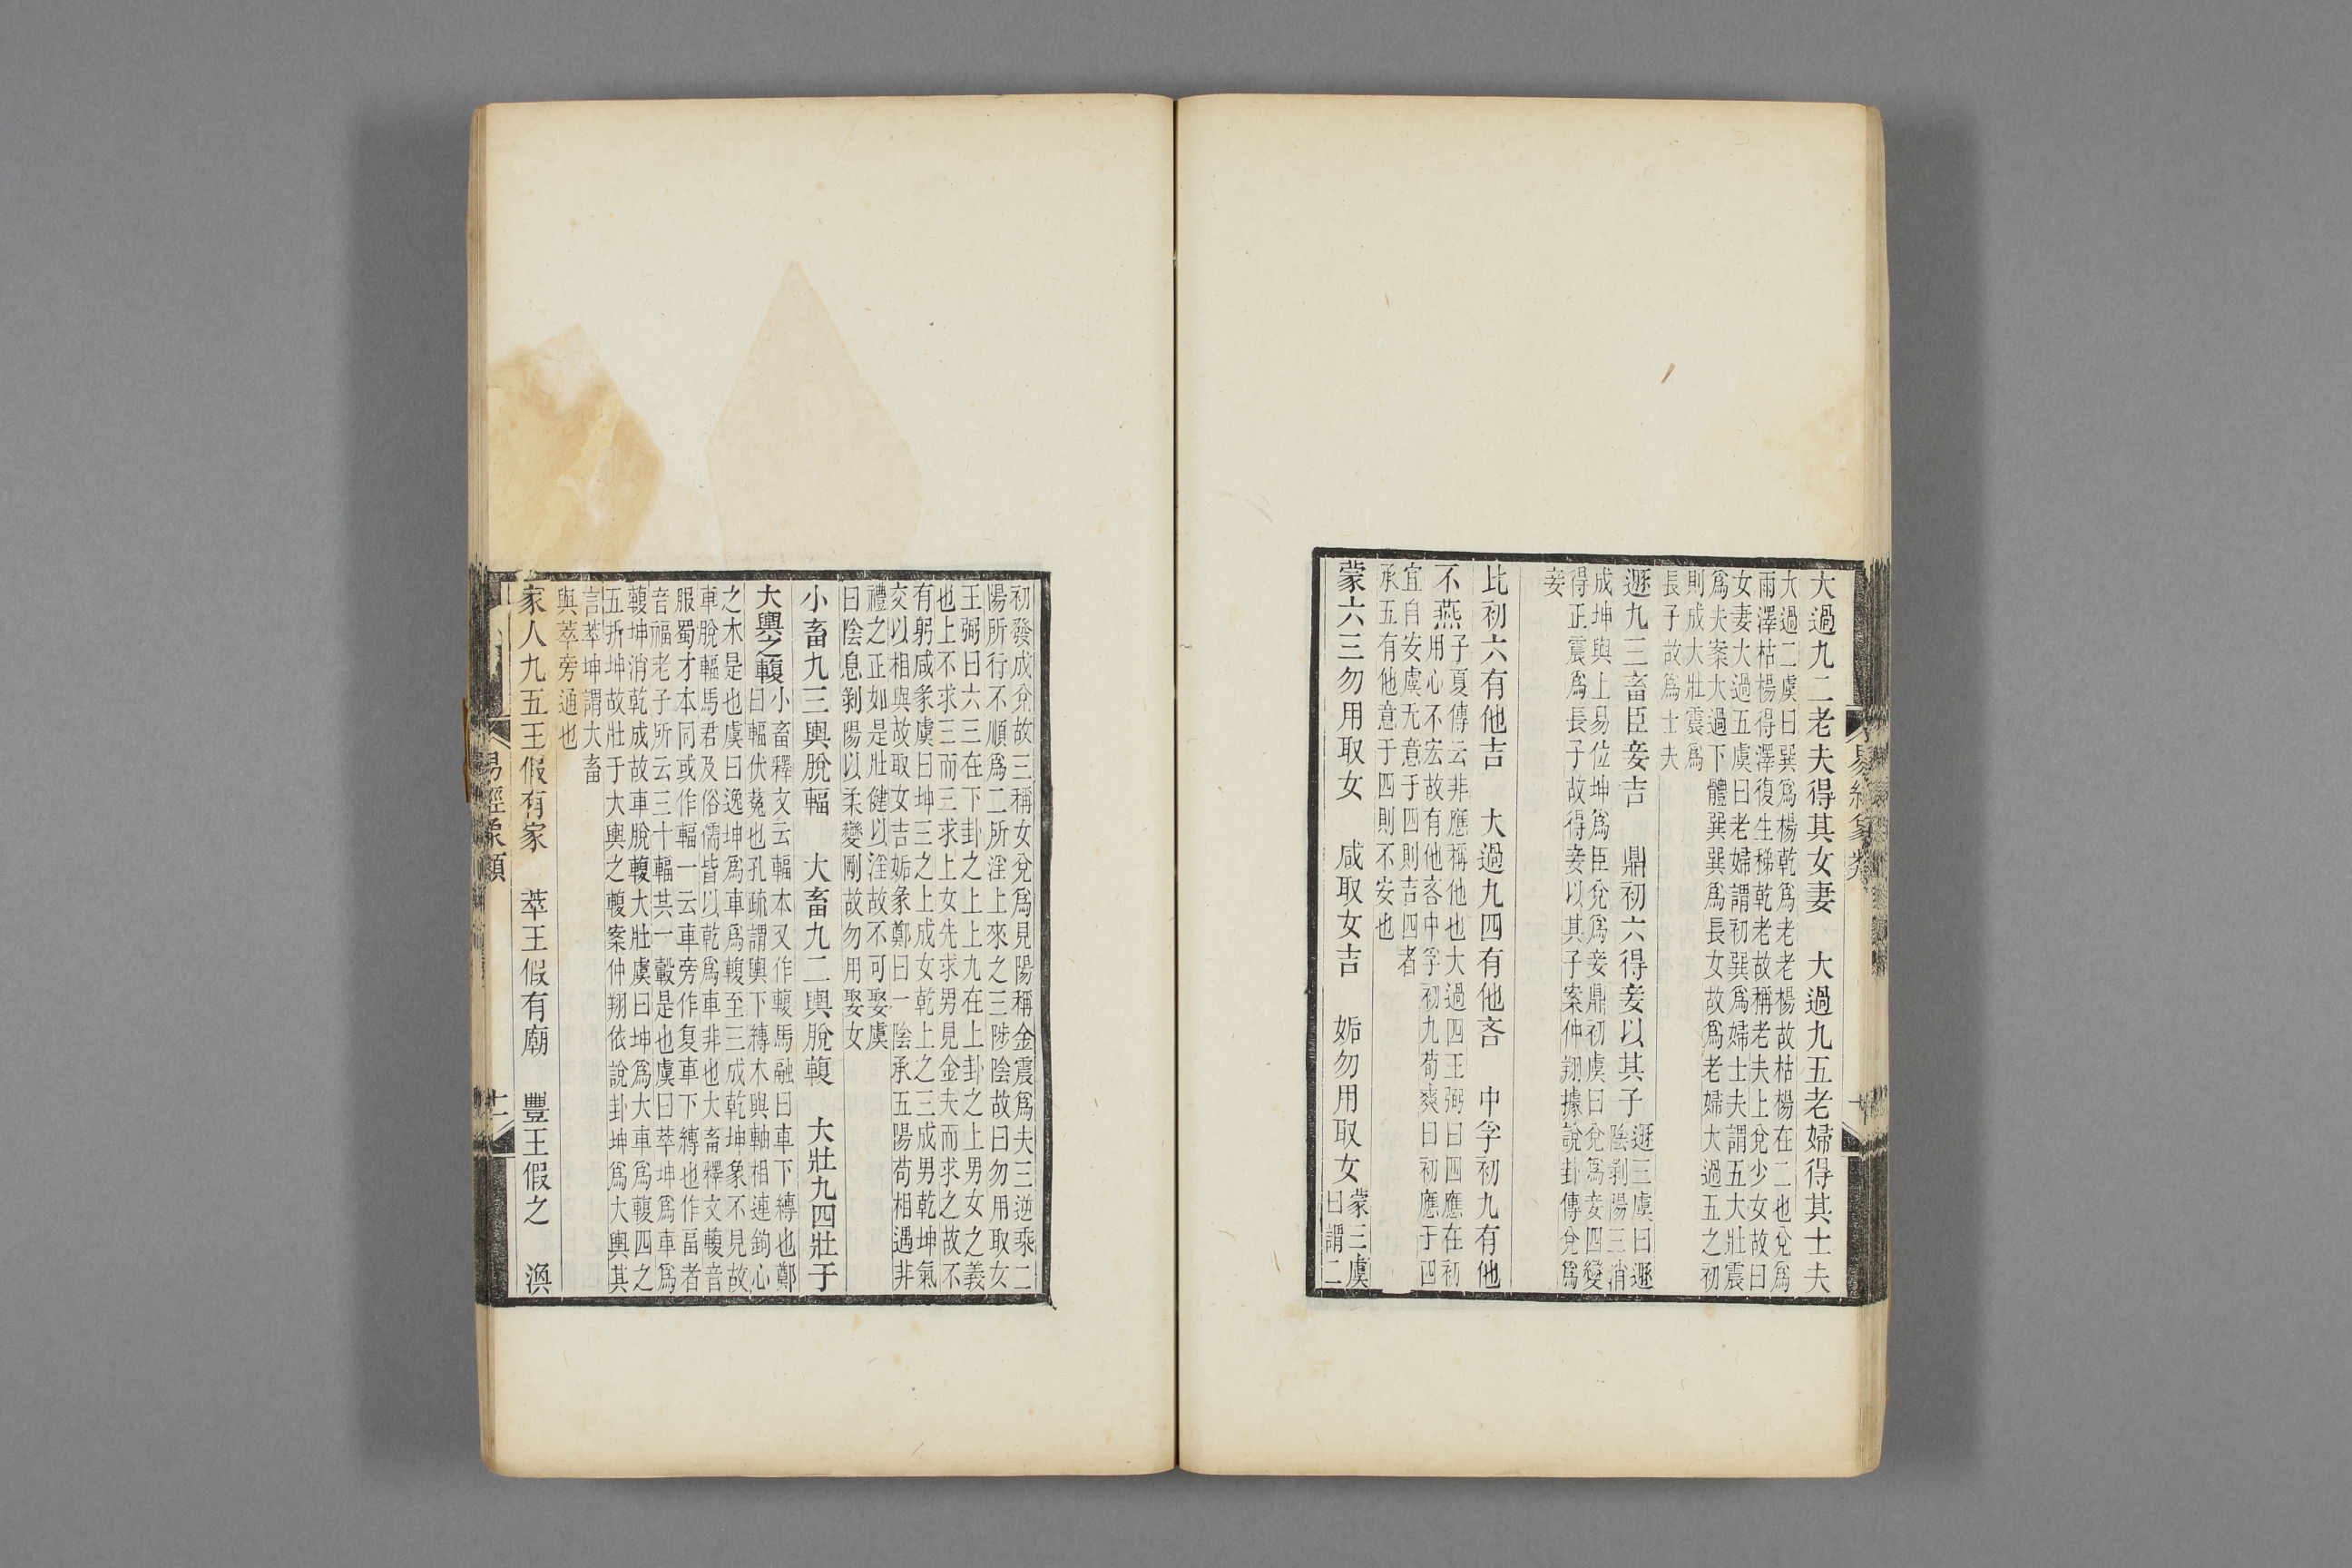 大過九二老夫得其女妻　大過九五老婦得其士夫
大過二虞曰巽爲楊乾爲老老楊故枯楊在二也兌爲
雨澤枯楊得澤復生稊乾老故稱老夫上兌少女故曰
女妻大過五虞曰老婦謂初巽爲婦士夫謂五大壯震
爲夫案大過下體巽巽爲長女故爲老婦大過五之初
則成大壯震爲
長子故爲士夫
遯九三畜臣妾吉　鼎初六得妾以其子
遯三虞曰遯
陰剝陽三消
成坤與上易位坤爲臣兌爲妾鼎初虞曰兌爲妾四變
得正震爲長子故得妾以其子案仲翔據說卦傳兌爲
妾
比初六有他吉　大過九四有他吝　中孚初九有他
不燕
子夏傳云非應稱他也大過四王弼曰四應在初
用心不宏故有他吝中孚初九荀爽曰初應于四
宜自安虞无意于四則吉四者
承五有他意于四則不安也
蒙六三勿用取女　咸取女吉　姤勿用取女
蒙三虞
曰謂二
初發成兌故三稱女兌爲見陽稱金震爲夫三逆乘二
陽所行不順爲二所淫上來之三陟陰故曰勿用取女
王弼曰六三在下卦之上上九在上卦之上男女之義
也上不求三而三求上女先求男見金夫而求之故不
有躬咸彖虞曰坤三之上成女乾上之三成男乾坤氣
交以相與故取女吉姤彖鄭曰一陰承五陽苟相遇非
禮之正如是壯健以淫故不可娶虞
曰陰息剝陽以柔變剛故勿用娶女
小畜九三輿脫輻　大畜九二輿脫輹　大壯九四壯于
大輿之輹
小畜釋文云輻本又作輹馬融曰車下縛也鄭
曰輻伏菟也孔疏謂輿下縛木與軸相連鉤心
之木是也虞曰逸坤爲車爲輹至三成乾坤象不見故
車脫輻馬君及俗儒皆以乾爲車非也大畜釋文輹音
服蜀才本同或作輻一云車旁作复車下縛也作畐者
音福老子所云三十輻其一轂是也虞曰萃坤爲車爲
輹坤消乾成故車脫輹大壯虞曰坤爲大車爲輹四之
五折坤故壯于大輿之輹案仲翔依說卦坤爲大輿其
言萃坤謂大畜
與萃旁通也
家人九五王假有家　萃王假有廟　豐王假之　渙
易經象類
十二